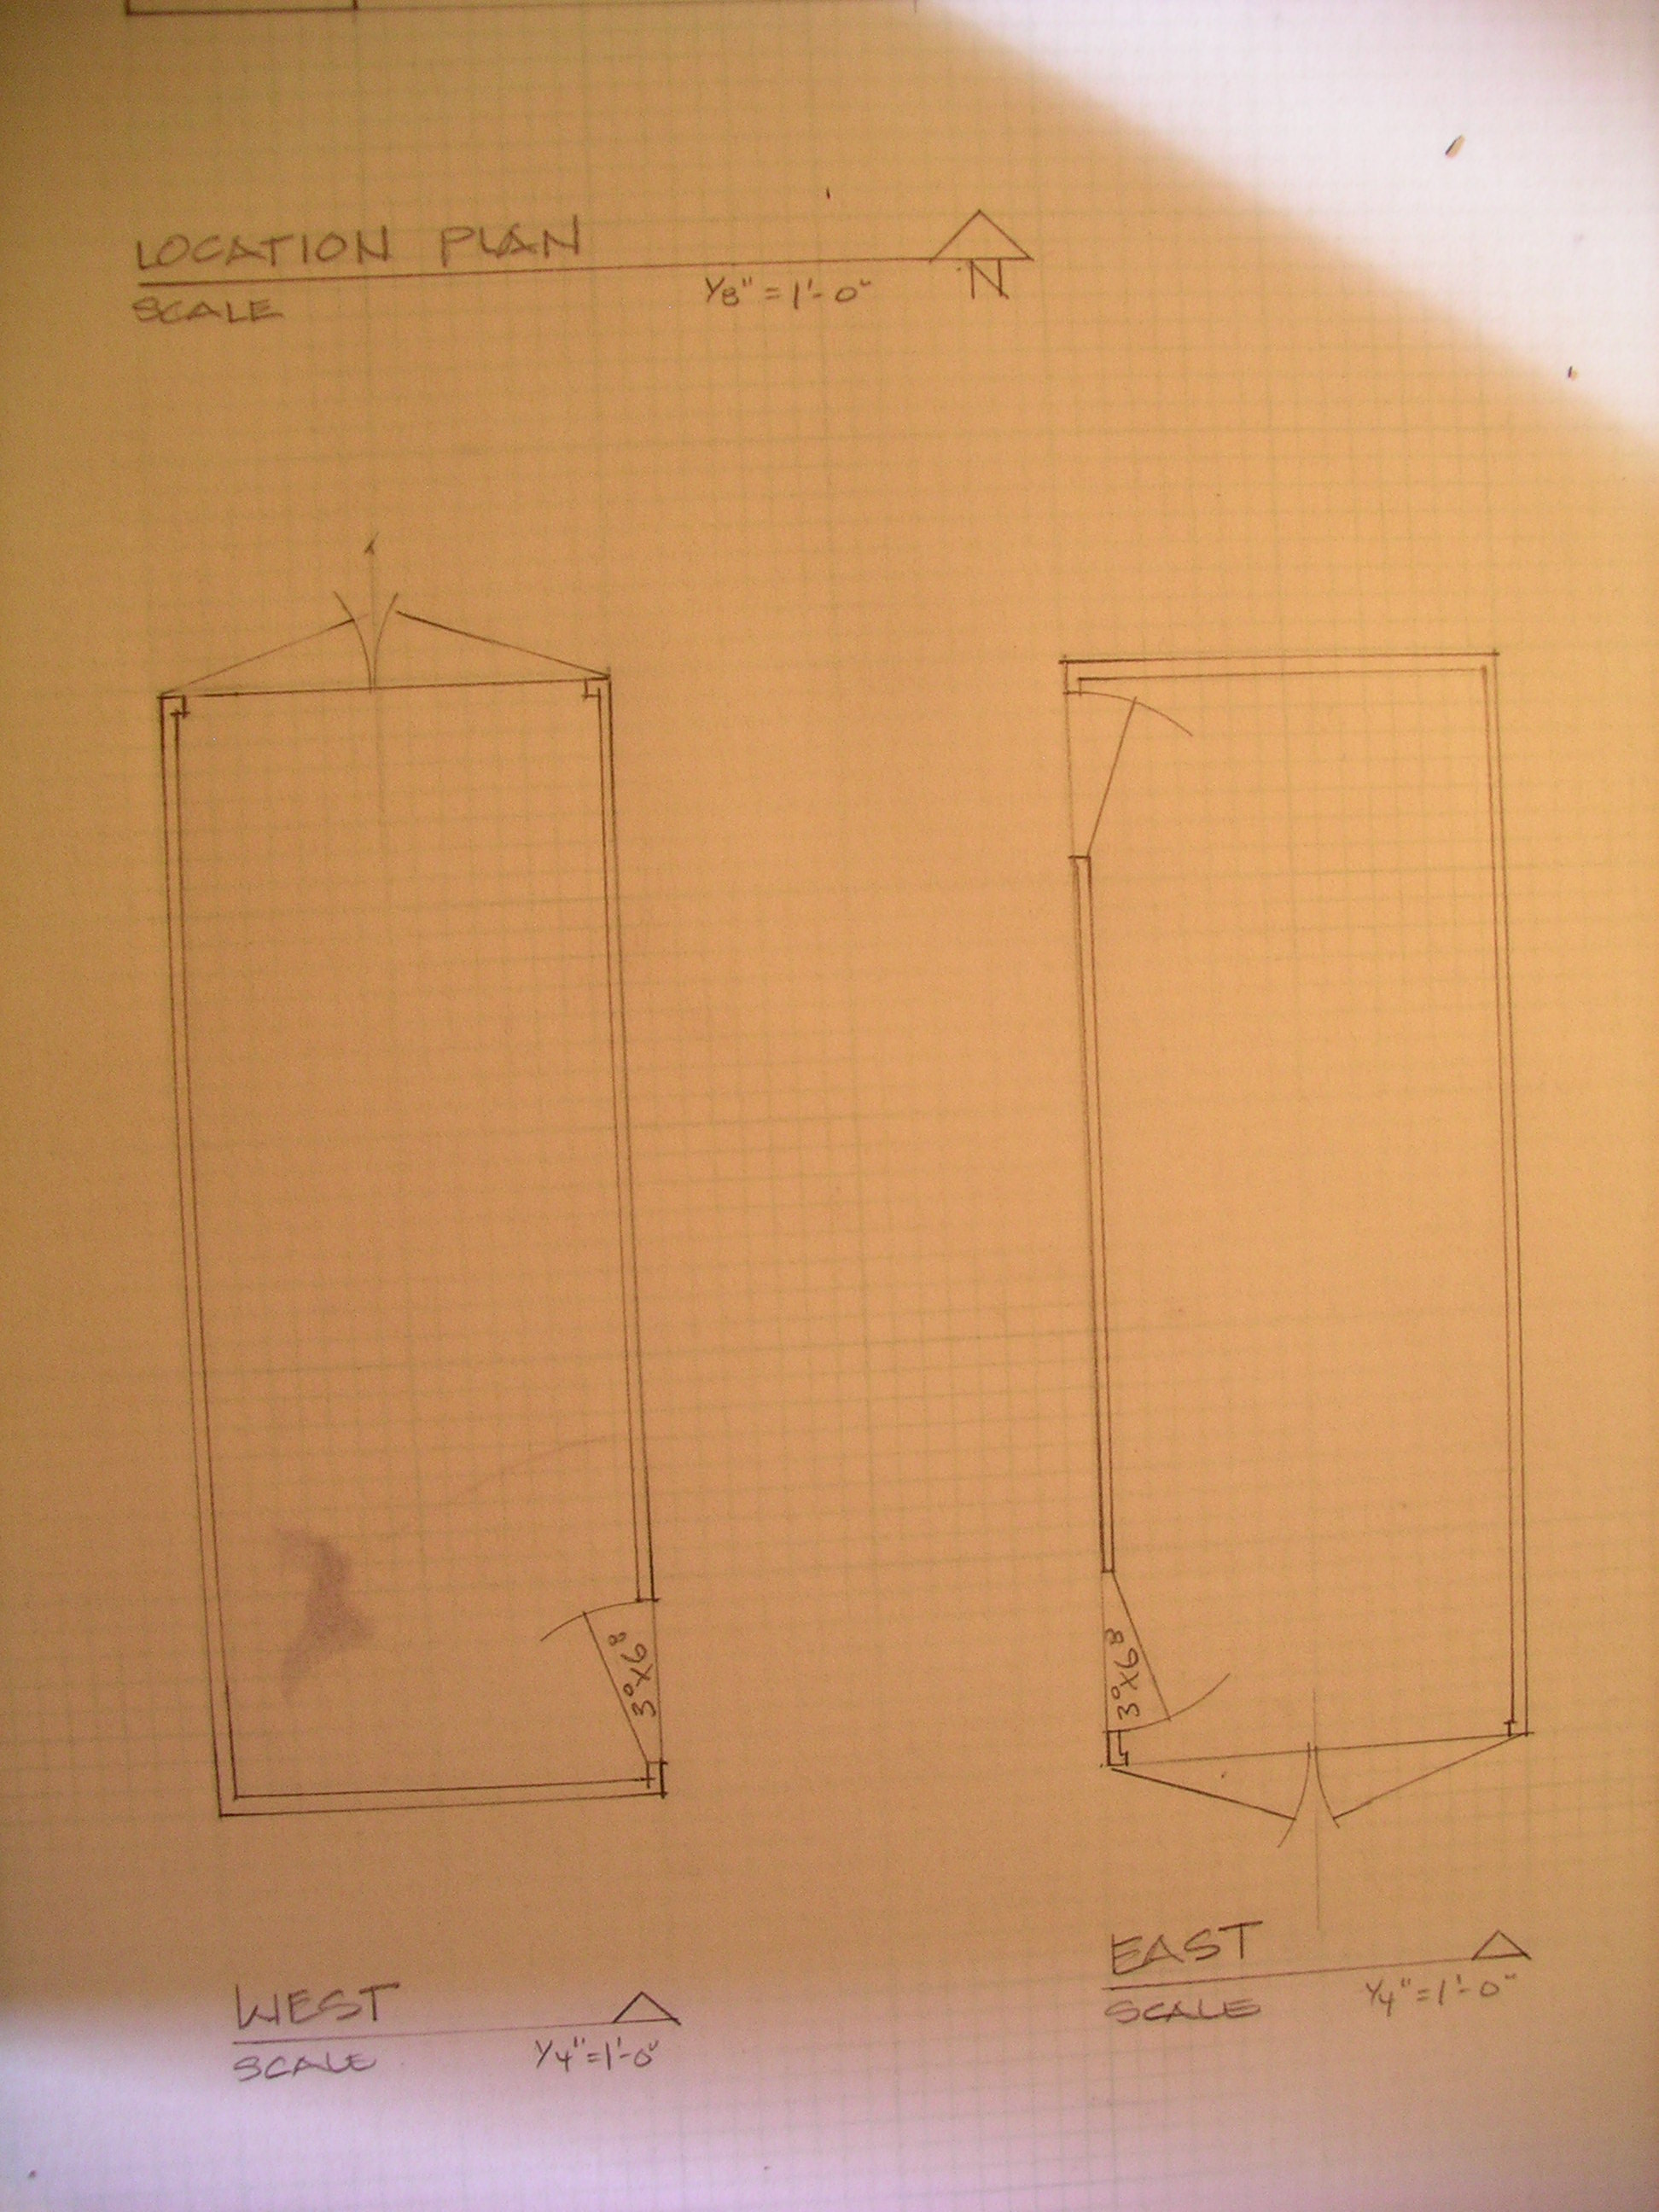 LOCATION PLAN
SCALE 1/8" = 1'-0" N
3⁰x6⁸
3⁰x6⁸
WEST
SCALE 1/4"=1'-0"
EAST
SCALE 1/4"=1'-0"